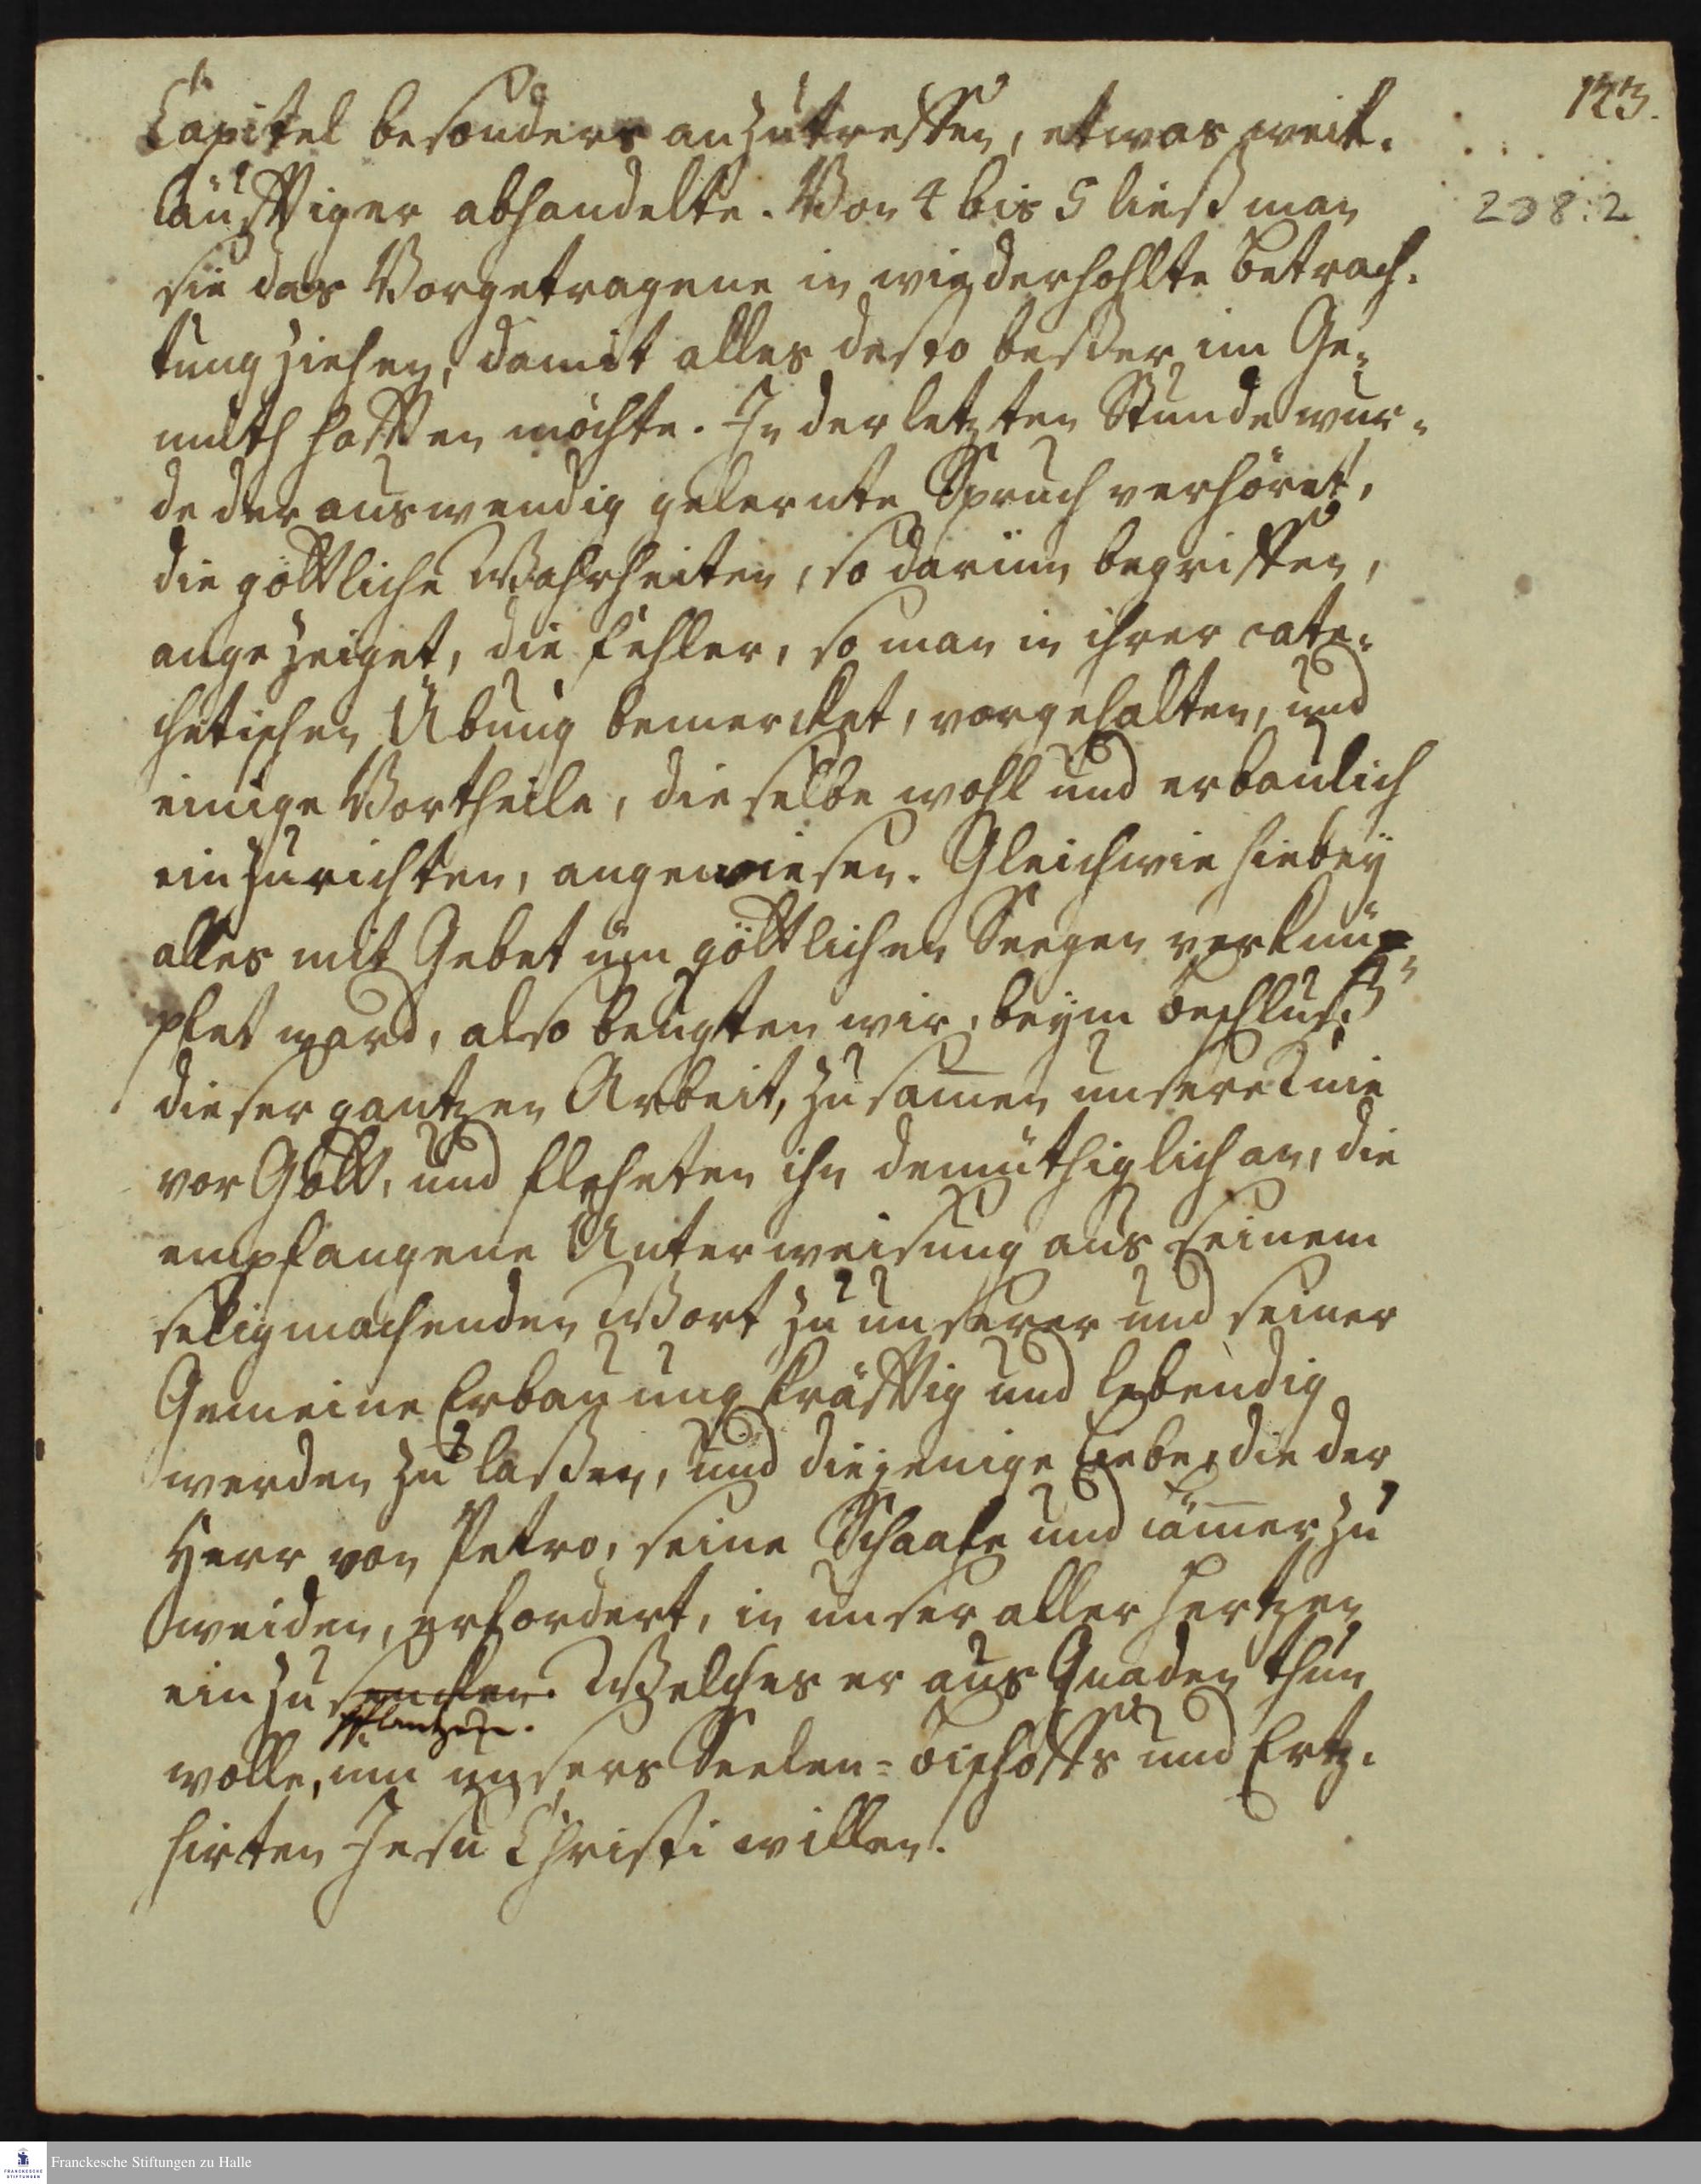 123.
208:2
Capitel besonders anzutreffen, etwas weit-
läufftiger abhandelte. Von 4 bis 5 ließ man
sie das Vorgetragene in wiederhohlte Betrach-
tung ziehen, damit alles desto beßer im Ge-
muth hafften möchte. In der letzten Stunde wur-
de der auswendig gelernte Spruch verhöret,
die göttliche Wahrheiten, so darinn begriffen,
angezeiget, die Fehler, so man in ihrer cate-
chetischen Übung bemercket, vorgehalten, und
einige Vortheile, dieselbe wohl und erbaulich
einzurichten, angewiesen. Gleichwie hiebey
alles mit Gebet um göttlichen Seegen verknü-
pfet ward, also beugten wir, beym Beschluß
dieser gantzen Arbeit, zusam̄en unsere Knie
vor Gott, und fleheten ihn demüthiglich an, die
empfangene Unterweisung aus seinem
seligmachenden Wort zu unserer und seiner
Gemeine Erbauung kräfftig und lebendig
werden zu laßen, und diejenige Liebe, die der
Herr von Petro, seine Schaafe und Läm̄er zu
weiden, erfordert, in unser aller Hertzen
einzusencken. Welches er aus Gnaden thun
pflantzen.
wolle, um unsers Seelen-Bischoffs und Ertz-
hirten Jesu Christi willen.
Franckesche Stiftungen zu Halle
FRANCKESCHE
STIFTUNGEN